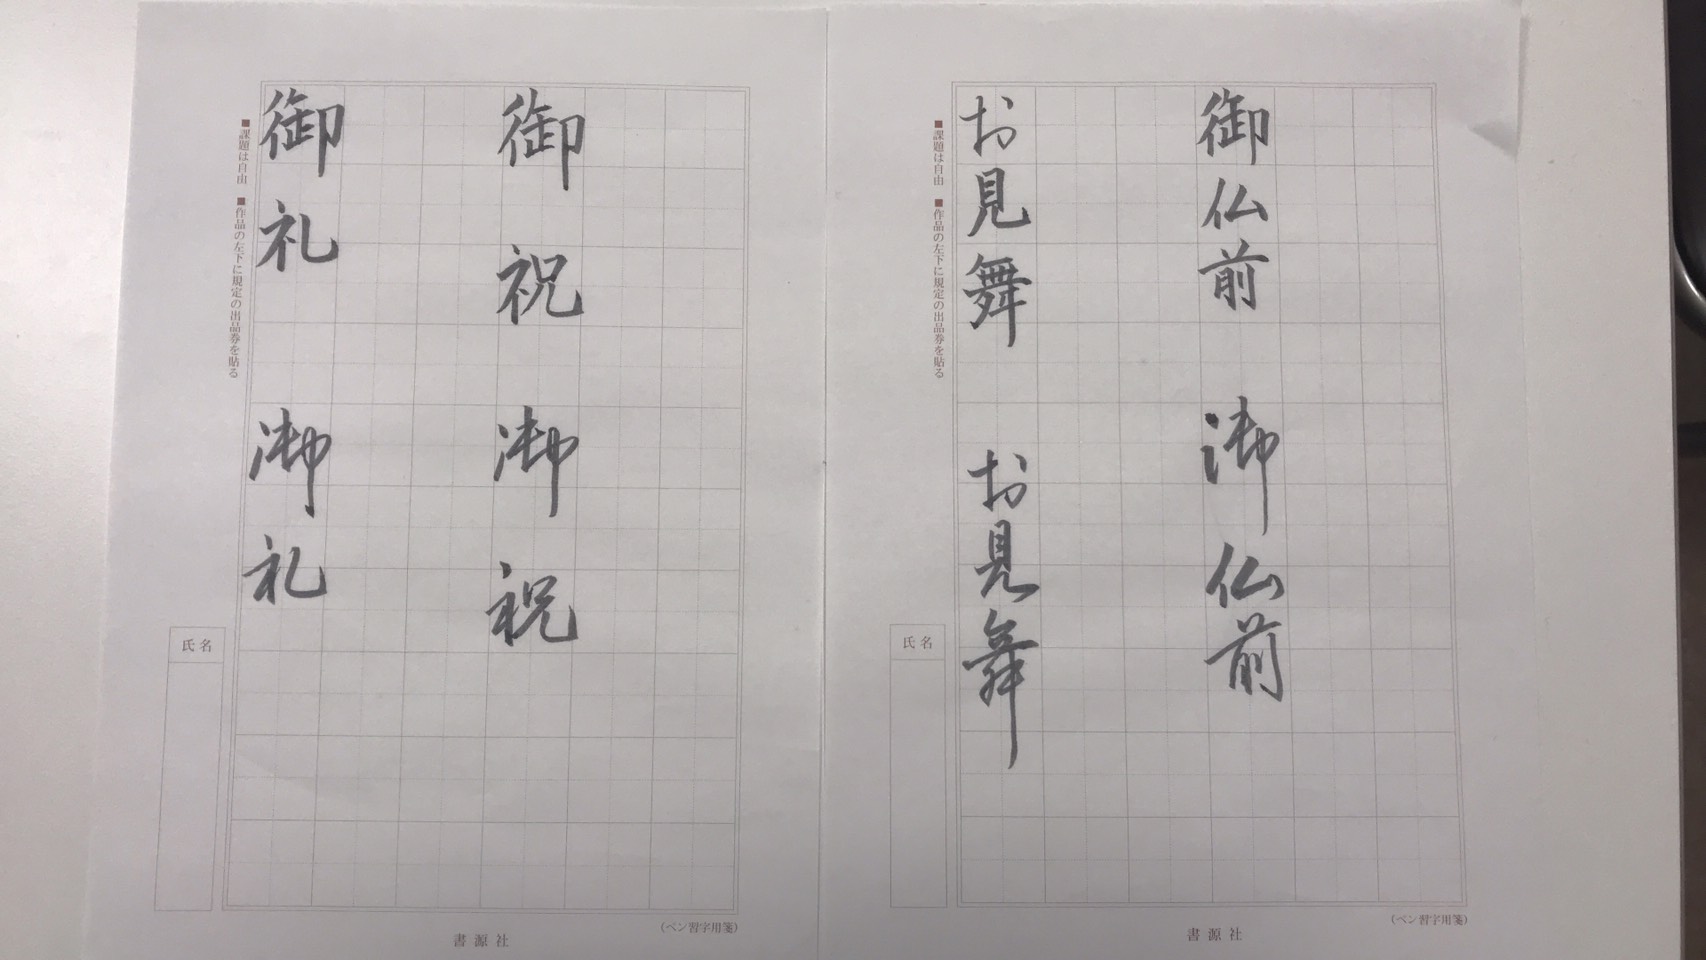 御仏前 御仏前
お見舞 お見舞
■課題は自由 ■作品の左下に規定の出品券を貼る
氏名
(ペン習字用箋)
書源社
御祝 御祝
御礼 御礼
■課題は自由 ■作品の左下に規定の出品券を貼る
氏名
(ペン習字用箋)
書源社